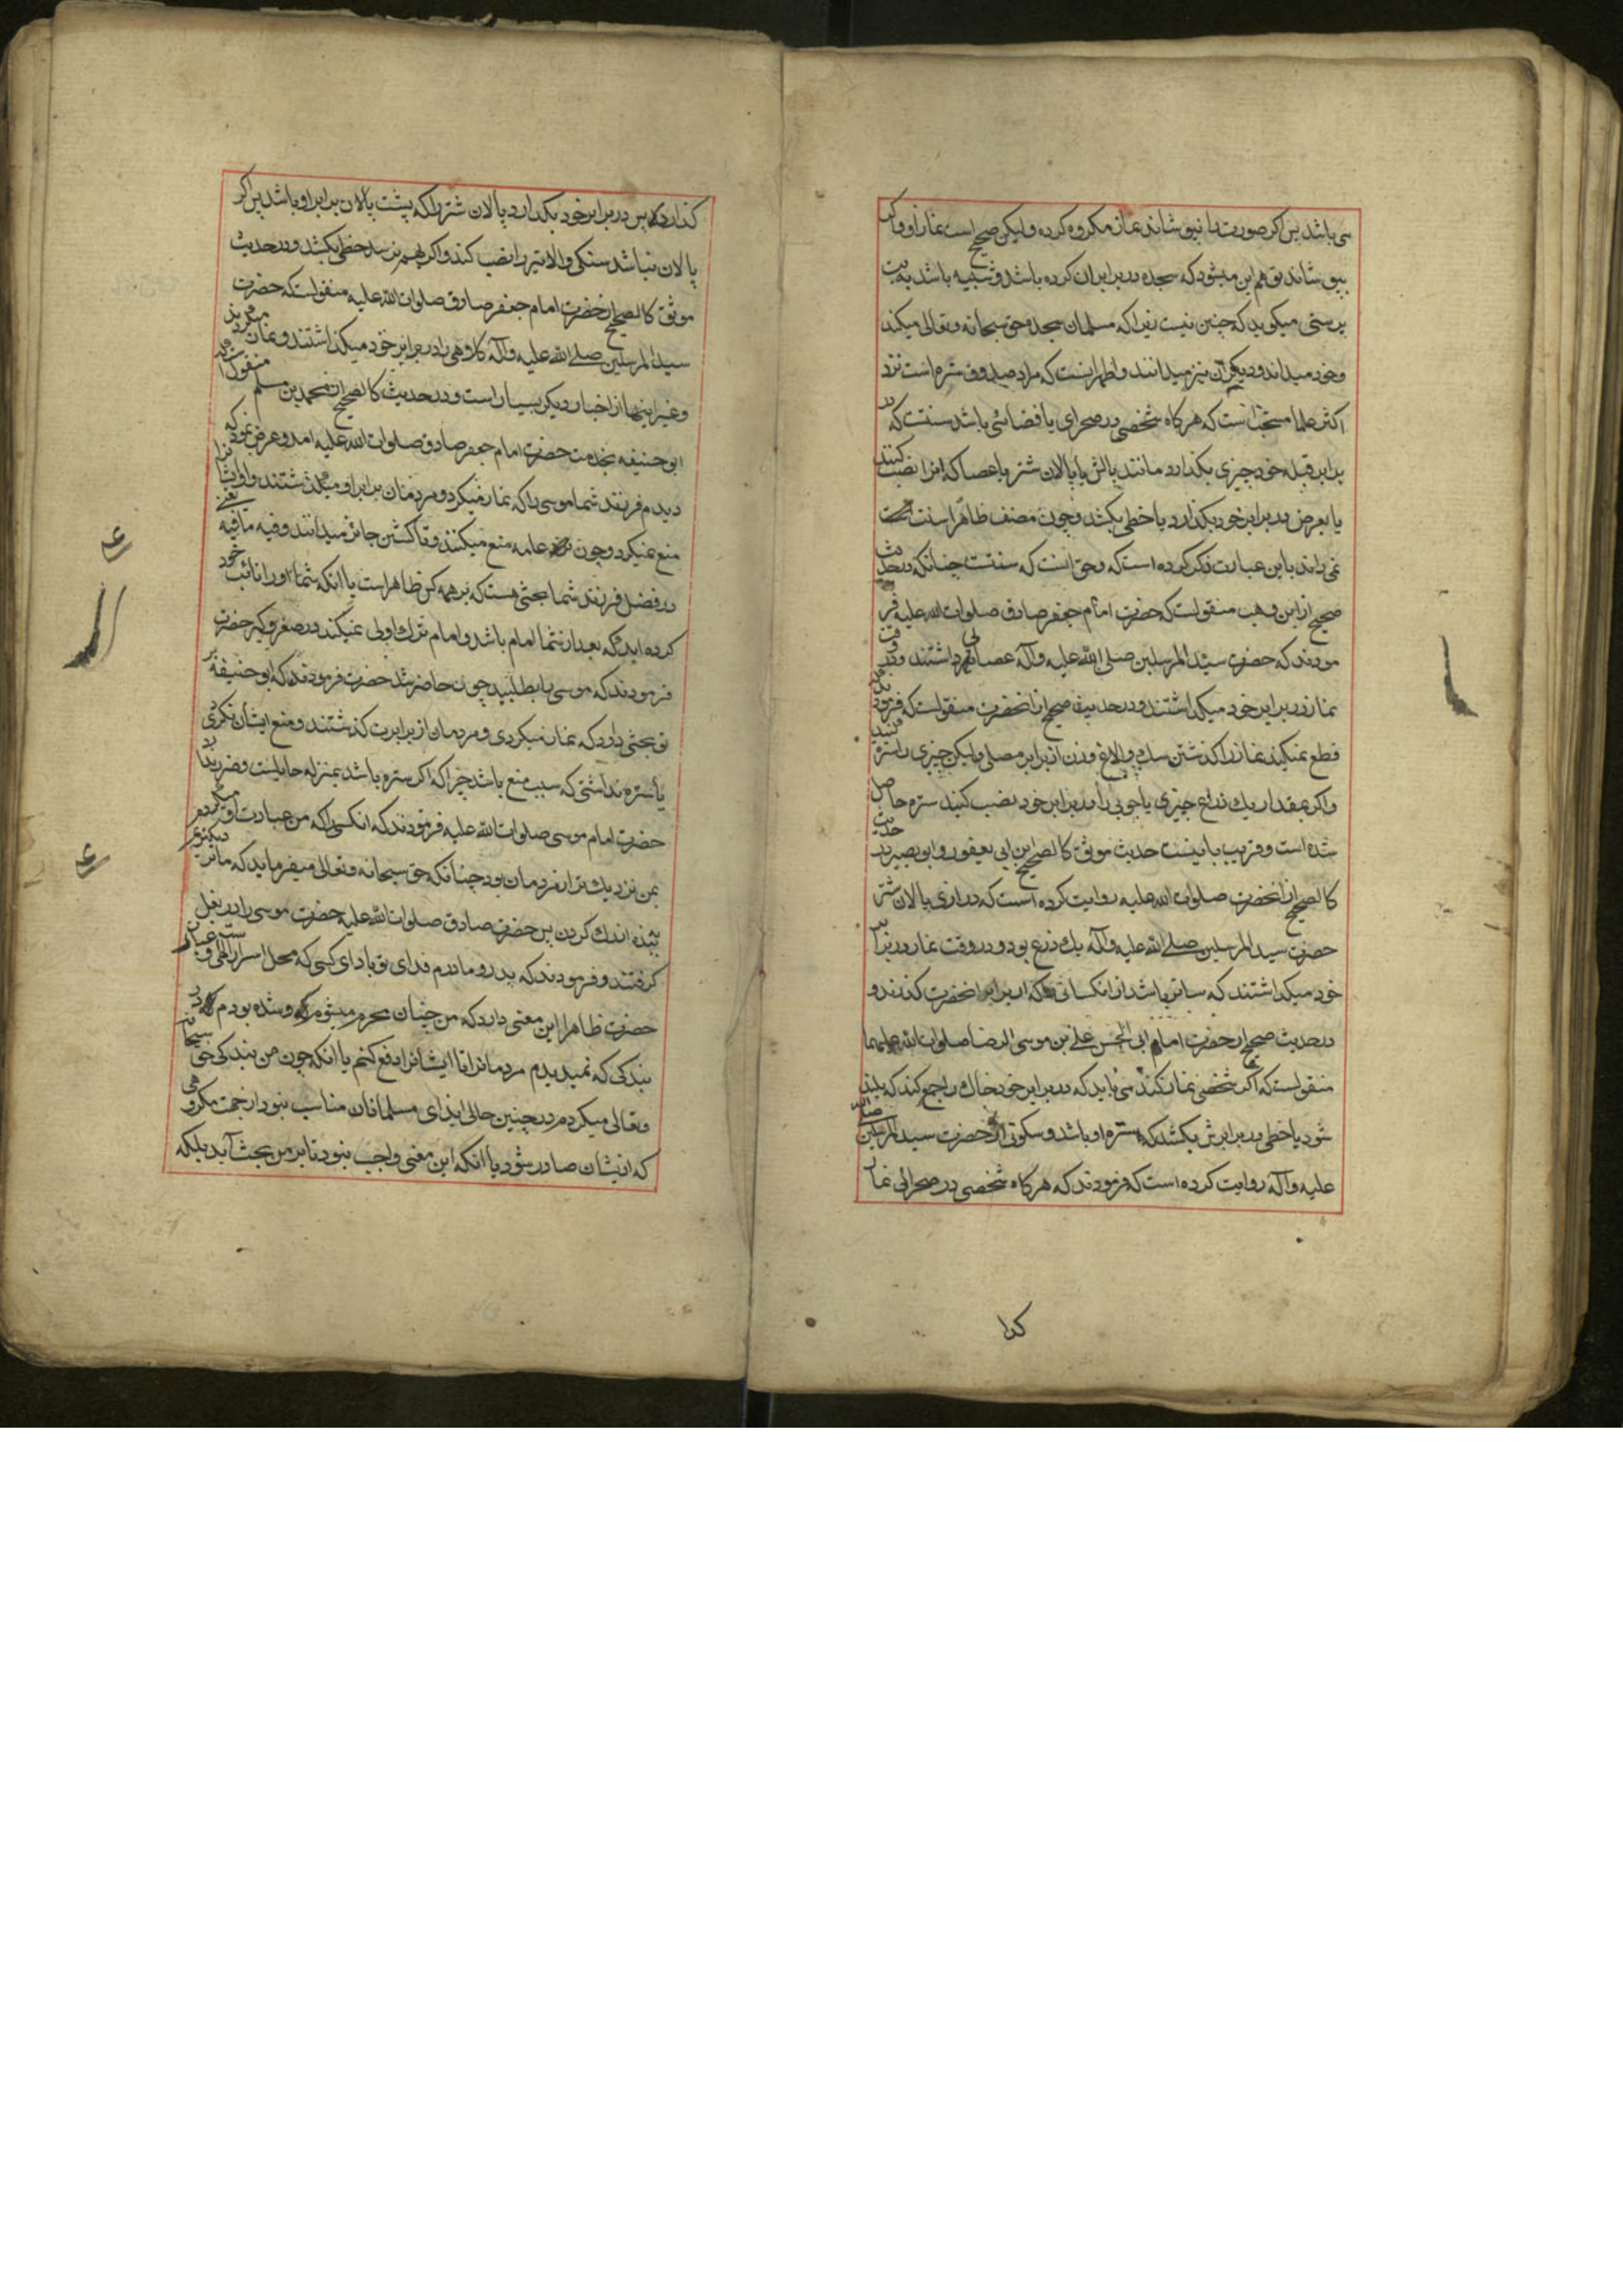 می باشد پس اکر صورت را نپوشاند نماز مکروه کرده ولیکن صحیح است نماز او واکر
بپوشاند توهم این میشود که سجده در برابر ان کرده باشد و شبیه باشد به بت
پرستی میکوید که چنین نیست زیرا که مسلمان سجده حق سبحانه وتعالی میکند
وخود میداند و دیکران نیز میدانند واظهر انست که مراد صدوق ستره است نزد
اکثر علما مستحبّ است که هرکاه شخصی در صحرای یا فضائی باشد سنتست که در
برابر قبله خود چیزی بکذارد مانند بالش یا پالان شتر یا عصا که انرا نصب کنند
یا بعرض در برابر خود بکذارد یا خطی بکشد وچون مصنف ظاهرًا سنت
نمی داند باین عبارت ذکر کرده است که وحق انست که سنتست چنانکه در حدیث
صحیح از ابن وهب منقولست که حضرت امام جعفر صادق صلوات الله علیه فر
مودند که حضرت سیّد المرسلین صلی الله علیه وآله عصایی داشتند ودر وقت
نماز در برابر خود میکذاشتند و در حدیث صحیح از انحضرت منقولست که فرمودند
قطع نمیکند نماز را کذشتن سک والاغ وزن از برابر مصلی ولیکن چیزی را ستره کنید
واکر بمقدار یک ذراع چیزی یا چوبی را در برابر خود نصب کنید ستره حاصل
شده است وقریب باینست حدیث موثق کالصحیح ابن ابی یعفور وابو بصیر در حدیث
کالصحیح از انحضرت صلوات الله علیه روایت کرده است که درازی پالان شتر
حضرت سید المرسلین صلے الله علیه وآله یک ذرع بود ودر وقت نماز در برابر
خود میکذاشتند که ساتر باشد از انکسانی که از برابر انحضرت کذرند و
در حدیث صحیح از حضرت امام ابی الحسن علے بن موسی الرضا صلوات الله علیهما
منقولست که اکر شخصی نماز کند می باید که در برابر خود خاک را جمع کند که بلند
شود یا خطی در برابرش بکشد که ستره او باشد وسکونی از حضرت سید المرسلین صلی الله
علیه وآله روایت کرده است که فرمودند که هرکاه شخصی در صحرائی نماز
کذا
کذارد پس در برابر خود بکذارد پالان شتر را که پشت پالان برابر او باشد پس اکر
پالان نباشد سنکی والا تیر را نصب کند واکر بهم نرسد خطی بکشد ودر حدیث
موثق کالصحیح از حضرت امام جعفر صادق صلوات الله علیه منقولست که حضرت
سید المرسلین صلے الله علیه وآله کلاهی را در برابر خود میکذاشتند ونماز میکردند
وغیر اینها از اخبار دیکر بسیار است ودر حدیث کالصحیح از محمد بن مسلم منقولست که
ابو حنیفه بخدمت حضرت امام جعفر صادق صلوات الله علیه امد وعرض نمود که
دیدم فرزند شما موسی را که نماز میکرد ومردمان برابر او میکذشتند واو ایشانرا
منع نمیکرد وچون عامه منع میکنند وتا کشتن جائز میدانند وفیه ما فیه یعنی
در فضل فرزند شما بحثی هست که بر همه کس ظاهر است با انکه شما او را نائب خود
کرده اید که بعد از شما امام باشد وامام ترک اولی نمیکند در صغر وکبر حضرت
فرمودند که موسی را بطلبید چون حاضر شد حضرت فرمودند که ابو حنیفه بر
تو بحثی دارد که نماز میکردی ومردمان از برابرت کذشتند ومنع ایشان نکردی
یا ستره نداشتی که سبب منع باشد چرا که اکر ستره باشد بمنزله حایلیست وضرر ندارد
حضرت امام موسی صلوات الله علیه فرمودند که انکسی را که من عبادت او میکردم
بمن نزدیک تر از مردمان بود چنانکه حق سبحانه وتعالی میفرماید که ما نزدیکتریم
ببنده از رک کردن پس حضرت صادق صلوات الله علیه حضرت موسی را در بغل
کرفتند وفرمودند که پدر ومادرم فدای تو باد ای کسی که محل اسرار الهی وعبارت
حضرت ظاهرا این معنی دارد که من چنان محو شده بودم در
بندکی که نمیدیدم مردمانرا تا ایشانرا دفع کنم یا انکه چون من بندکی حق سبحانه
وتعالی میکردم در چنین حالی ایذای مسلمانان مناسب نبود از جهت مکروهی
که از ایشان صادر شود با انکه این معنی واجب نبود تا بر من بحث آید بلکه